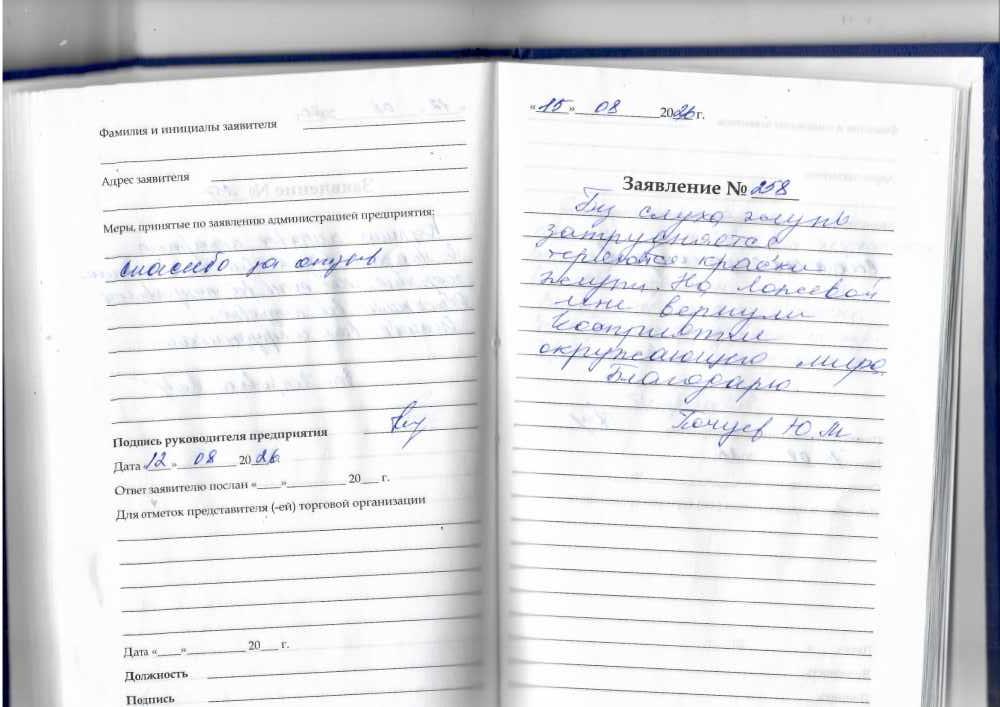 Фамилия и инициалы заявителя
Адрес заявителя
Меры, принятые по заявлению администрацией предприятия:
спасибо за отзыв
Подпись руководителя предприятия
Дата «12» 08 2026
Ответ заявителю послан «____»__________ 20___ г.
Для отметок представителя (-ей) торговой организации
Дата «____»__________ 20___ г.
Должность
Подпись
«15» 08 2026 г.
Заявление № 258
Без слуха жизнь
затрудняется
теряются краски
жизни. На
мне вернули
восприятия
окружающего мира
Благодарю.
Ю.М.